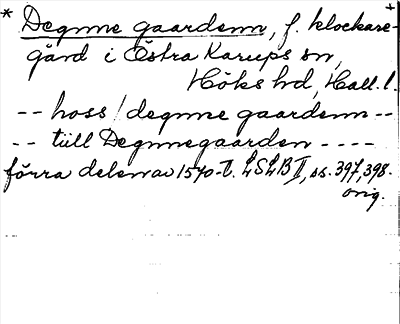 * Degnne gaardenn, f. klockare- +
gård i Östra Karups sn,
Höks hd, Hall. l.
-- hoss / degnne gaardenn --
-- tiill Degnnegaarden ----
förra delen av 1570-t. LSLB II, ss. 397, 398.
orig.